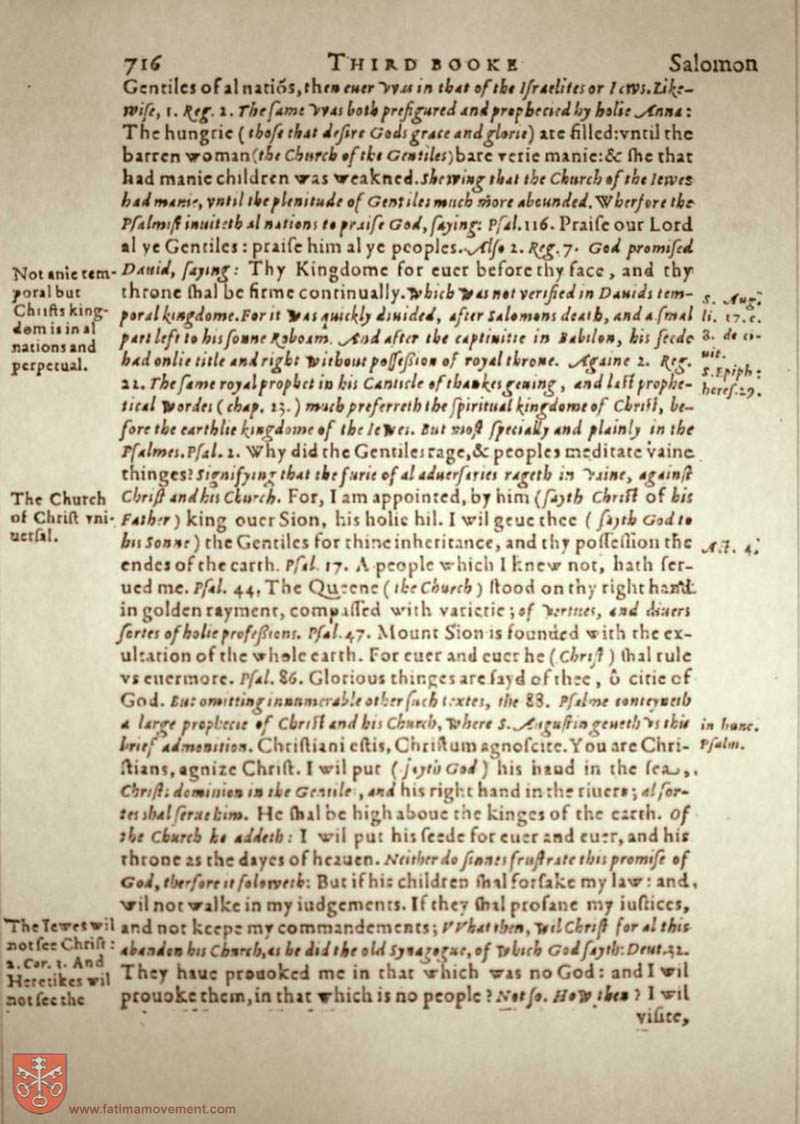 716 THIRD BOOKE Salomon
Gentiles of al natiōs, then euer was in that of the Iſraelites or Iewes. Like-
wiſe, 1. Reg. 2. The ſame was both prefigured and prophecied by holie Anna:
The hungrie ( thoſe that deſire Gods grace and glorie ) are filled: vntil the
barren woman (the Church of the Gentiles) bare verie manie: & ſhe that
had manie children was weakned. Shewing that the Church of the Iewes
had manie, vntil the plenitude of Gentiles much more abounded. Wherfore the
Pſalmiſt inuiteth al nations to praiſe God, ſaying: Pſal. 116. Praiſe our Lord
al ye Gentiles: praiſe him al ye peoples. Alſo 2. Reg. 7. God promiſed
Dauid, ſaying: Thy Kingdome for euer before thy face, and thy
throne ſhal be firme continually. Which was not verified in Dauids tem-
poral kingdome. For it was quickly diuided, after Salomons death, and a ſmal
part left to his ſonne Roboam. And after the captiuitie in Babilon, his ſeede
had onlie title and right without poſſeſſion of royal throne. Againe 2. Reg.
22. The ſame royal prophet in his Canticle of thankesgeuing, and laſt prophe-
tical wordes ( chap. 23. ) much preferreth the ſpiritual kingdome of Chriſt, be-
fore the earthlie kingdome of the Iewes. But moſt ſpecially and plainly in the
Pſalmes. Pſal. 2. Why did the Gentiles rage, & peoples meditate vaine
thinges? Signifying that the furie of al aduerſaries rageth in vaine, againſt
Chriſt and his Church. For, I am appointed, by him (ſayth Chriſt of his
Father ) king ouer Sion, his holie hil. I wil geue thee ( ſayth God to
his Sonne ) the Gentiles for thine inheritance, and thy poſſeſſion the
endes of the earth. Pſal. 17. A people which I knew not, hath ſer-
ued me. Pſal. 44. The Queene ( the Church ) ſtood on thy right hand
in golden rayment, compaſſed with varietie; of vertues, and diuers
ſortes of holie profeſſions. Pſal. 47. Mount Sion is founded with the ex-
ultation of the whole earth. For euer and euer he ( Chriſt ) ſhal rule
vs euermore. Pſal. 86. Glorious thinges are ſayd of thee, ô citie of
God. But omitting innumerable other ſuch textes, the 88. Pſalme conteyneth
a large prophecie of Chriſt and his Church, where S. Auguſtin geueth vs this
brief admonition. Chriſtiani eſtis, Chriſtum agnoſcite. You are Chri-
ſtians, agnize Chriſt. I wil put ( ſayth God ) his hand in the ſea,
Chriſts dominion in the Gentile, and his right hand in the riuers; al ſor-
tes ſhal ſerue him. He ſhal be high aboue the kinges of the earth. Of
the Church he addeth: I wil put his ſeede for euer and euer, and his
throne as the dayes of heauen. Neither do ſinnes fruſtrate this promiſe of
God, therfore it foloweth: But if his children ſhal forſake my law: and
wil not walke in my iudgements. If they ſhal profane my iuſtices,
and not keepe my commandements; VVhat then, wil Chriſt for al this
abandon his Church, as he did the old Synagogue, of which God ſayth: Deut. 32.
They haue prouoked me in that which was no God: and I wil
prouoke them, in that which is no people? Not ſo. How then? I wil
viſite,
Not anie tem-
poral but
Chriſts king-
dom is in al
nations and
perpetual.
The Church
of Chriſt vni-
uerſal.
The Iewes wil
not ſee Chriſt:
2. Cor. 3. And
Heretikes wil
not ſee the
S. Aug.
li. 17. c.
8. de ci-
uit.
S. Epiph:
hereſ. 29.
Act. 4.
in hunc.
Pſalm.
www.fatimamovement.com